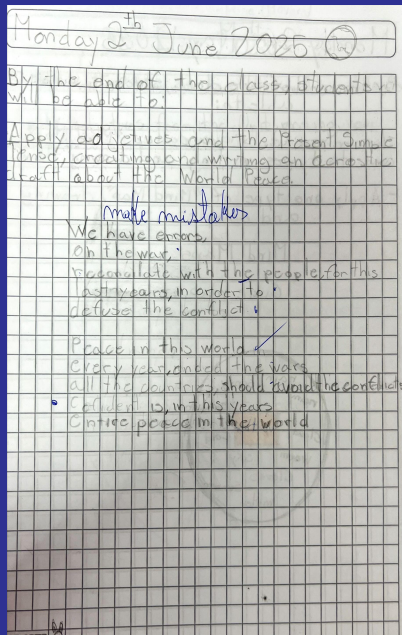 Monday 2th June 2025
By the end of the class, students
will be able to:
Apply adjetives and the Present Simple
tense, creating and writing an acrostic
draft about the World Peace.
make mistakes
We have errors,
on the war,
reconcilate with the people, for this
last years, in order to
defuse the conflict
Peace in this world
every year, ended the wars
all the countries, should avoid the conflicts
is, in this years
Entire peace in the world